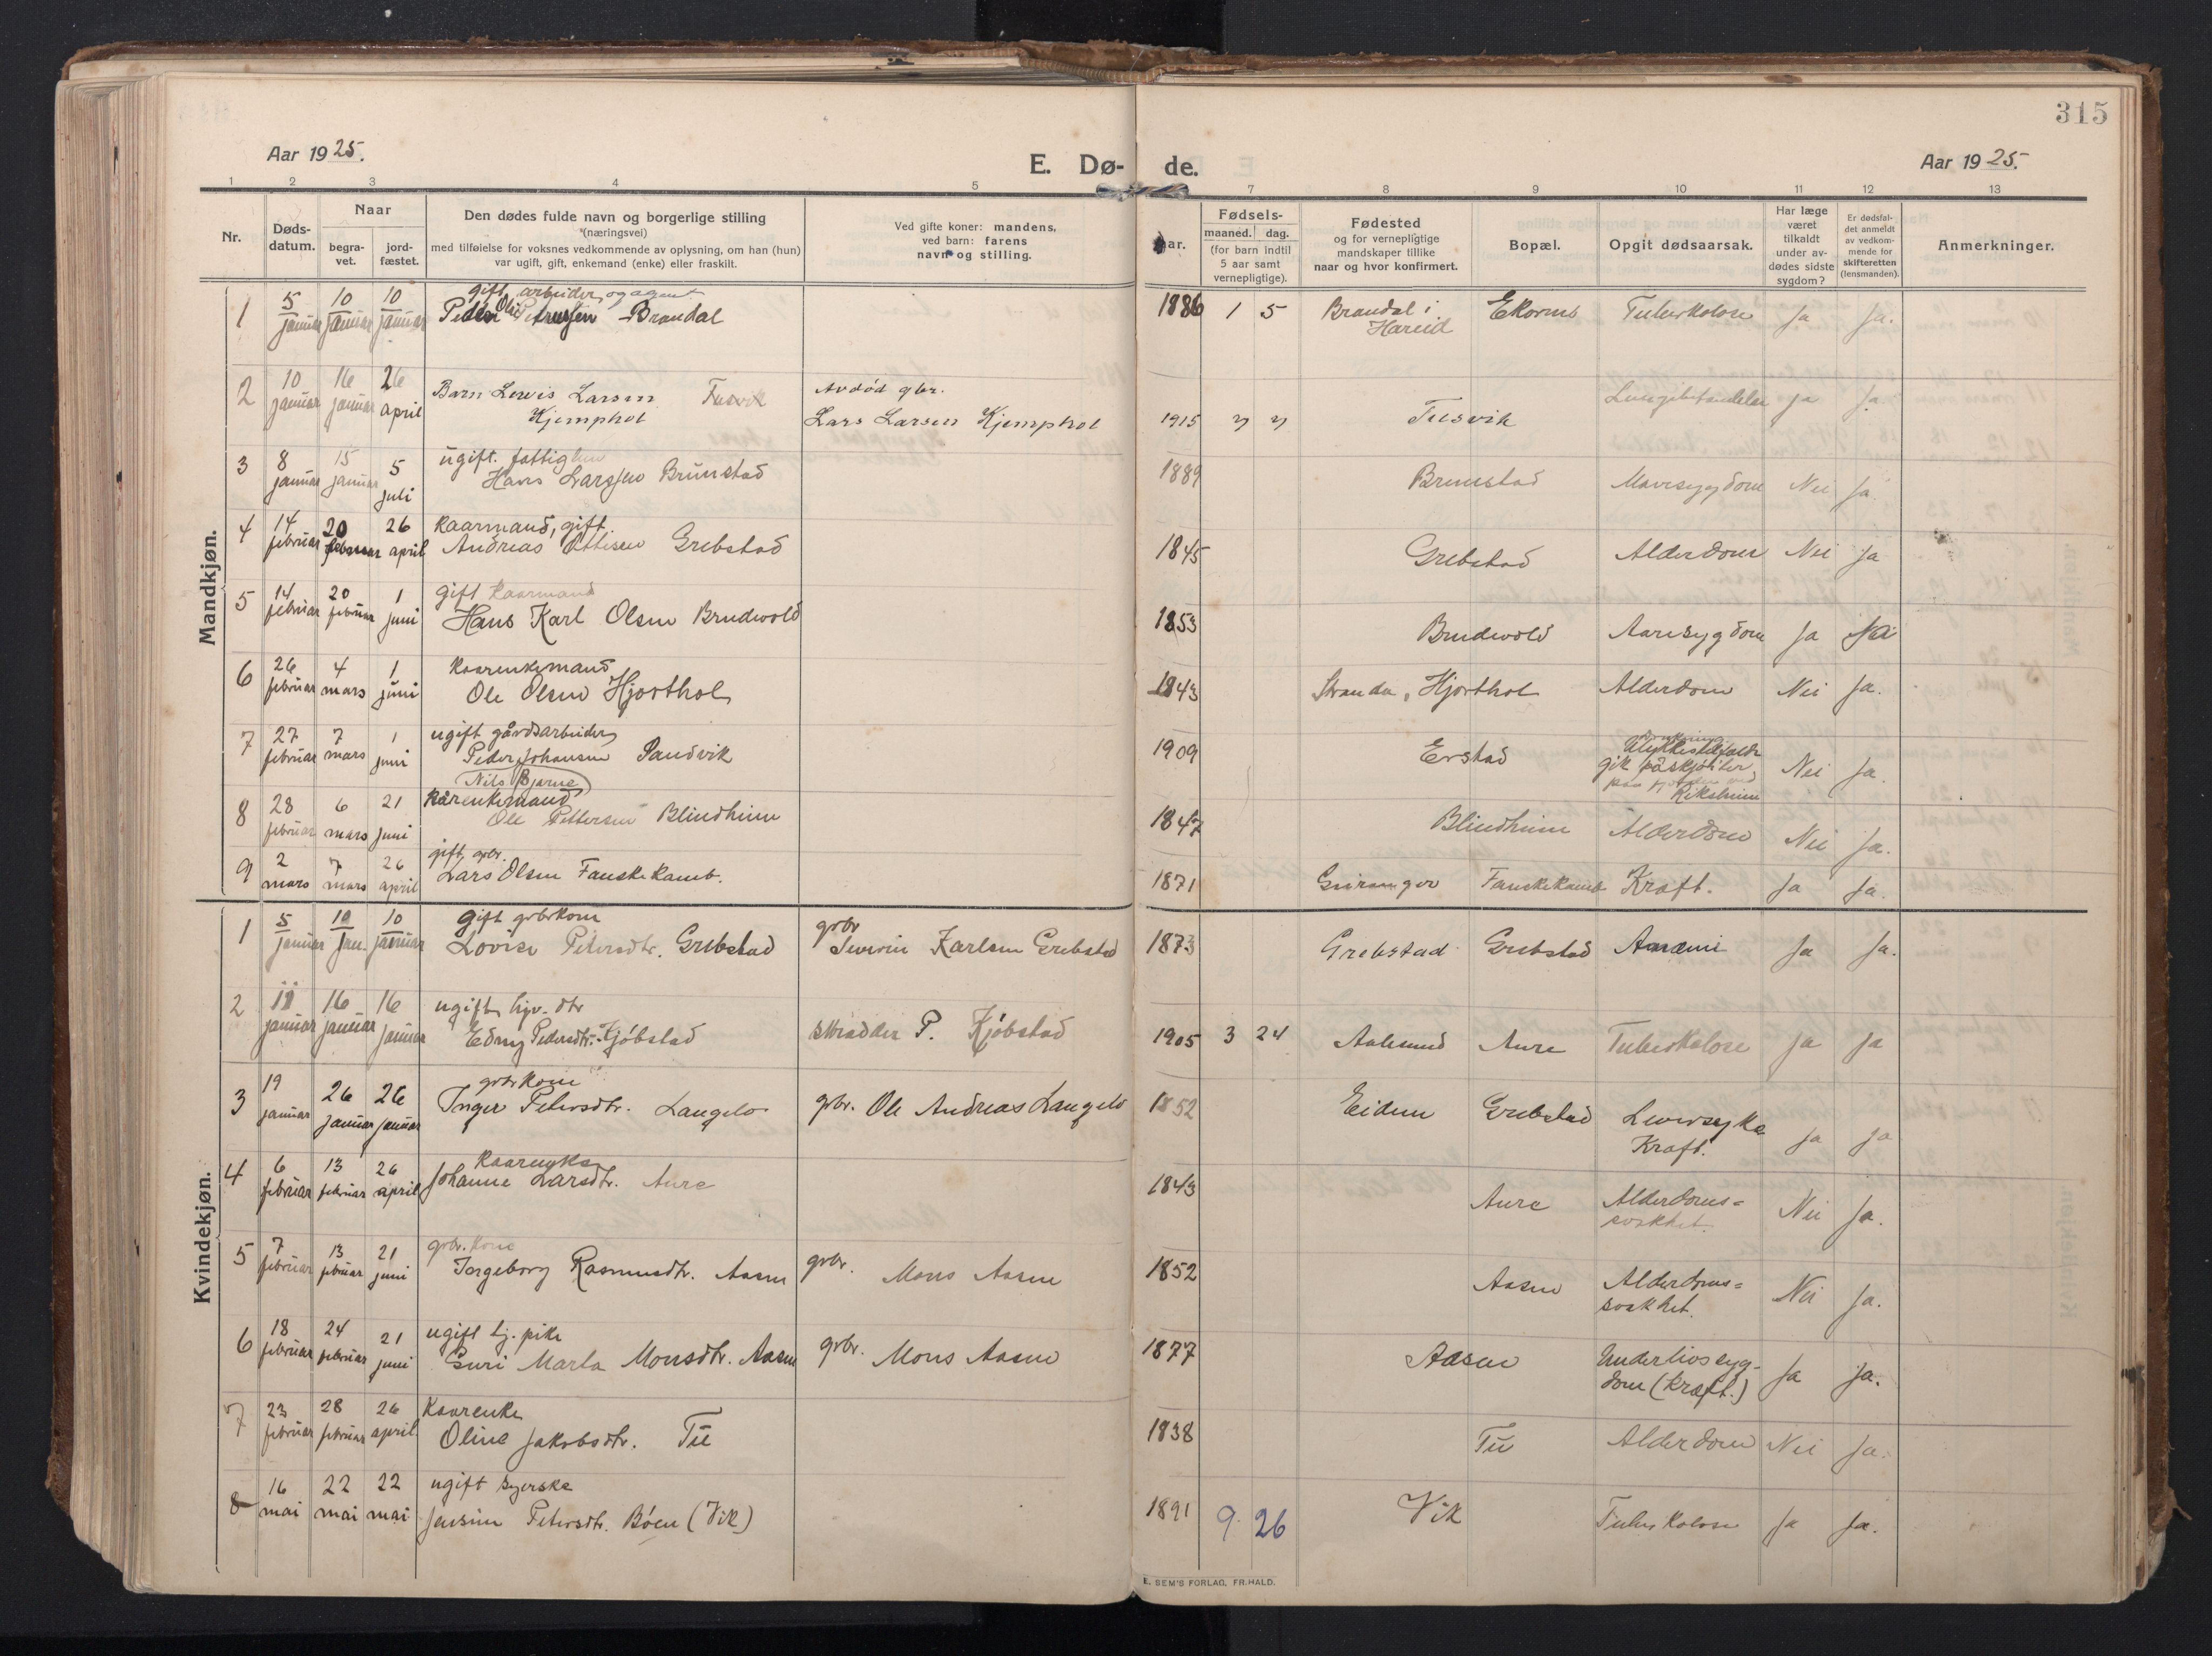 315
Aar 1925.
E. Dø- de.
Aar 1925.
1 2 3 4 5 7 8 9 10 11 12 13
Nr.
Døds-
datum.
Naar
begra-
vet.
jord-
fæstet.
Den dødes fulde navn og borgerlige stilling
(næringsvei)
med tilføielse for voksnes vedkommende av oplysning, om han (hun)
var ugift, gift, enkemand (enke) eller fraskilt.
Ved gifte koner: mandens,
ved barn: farens
navn og stilling.
aar.
Fødsels-
maaned. dag.
(for barn indtil
5 aar samt
vernepligtige).
Fødested
og for vernepligtige
mandskaper tillike
naar og hvor konfirmert.
Bopæl.
Opgit dødsaarsak.
Har læge
været
tilkaldt
under av-
dødes sidste
sygdom?
Er dødsfal-
det anmeldt
av vedkom-
mende for
skifteretten
(lensmanden).
Anmerkninger.
Mandkjøn.
gift, arbeider og agent
1 5 januar 10 januar 10 januar Peder Ole Petersen Brandal 1886 1 5 Brandal i Hareid Ekornes Tuberkolose Ja Ja.
2 10 januar 16 januar 26 april Barn Lewis Larsen Tusvik
Kjemphol
Avdød gbr.
Lars Larsen Kjemphol 1915 " " Tusvik Lungebetændelse Ja Ja
ugift. fattiglem
3 8 januar 15 januar 5 juli Hans Larssen Brunstad 1889 Brunstad Mavesygdom Nei Ja.
kaarmand, gift.
4 14 februar 20 februar 26 april Andreas Ottisen Grebstad 1845 Grebstad Alderdom Nei Ja
gift kaarmand
5 14 februar 20 februar 1 juni Hans Karl Olsen Brudevold 1853 Brudevold Aaresygdom Ja Ja
kaarenkemand
6 26 februar 4 mars 1 juni Ole Olsen Hjorthol 1843 Stranda, Hjorthol Alderdom Nei Ja.
ugift gårdsarbeider
7 27 februar 7 mars 1 juni Peder Johansen Sandvik
Nils Bjarne
1909 Erstad Ulykkestilfælde
gik på skjøiter
Riksheim Nei Ja.
kårenkemand
8 28 februar 6 mars 21 juni Ole Pettersen Blindheim 1847 Blindheim Alderdom Nei Ja.
gift, gbr.
9 2 mars 7 mars 26 april Lars Olsen Fauskekamb. 1871 Geiranger Fauskekamb Kræft. Ja Ja.
Kvindekjøn.
gift grbrkone
1 5 januar 10 jan. 10 januar Lovise Petersdtr. Grebstad grbr Severin Karlsen Grebstad 1873 Grebstad Grebstad Anæmi Ja Ja.
ugift, hjv. dtr
2 11 januar 16 januar 16 januar Edny Pedersdtr. Kjøbstad skrædder P. Kjøbstad 1905 3 24 Aalesund Aure Tuberkolose Ja Ja
grbrkone
3 19 januar 26 januar 26 januar Inger Petersdtr. Langelo grbr. Ole Andreas Langelo 1852 Eidem Grebstad Leversyke
Kræft. Ja Ja
Kaarenke
4 6 februar 13 februar 26 april Johanne Larsdtr. Aure 1843 Aure Alderdoms=
svakhet. Nei Ja.
grbr. kone
5 7 februar 13 februar 21 juni Ingeborg Rasmusdtr. Aasen grbr. Mons Aasen 1852 Aasen Alderdoms=
svakhet. Nei Ja.
ugift hj. pike
6 18 februar 24 februar 21 juni Guri Marta Monsdtr. Aasen grbr. Mons Aasen 1877 Aasen Underlivssyg-
dom (kræft.) Ja Ja.
Kaarenke
7 23 februar 28 februar 26 april Oline Jakobsdtr. Tu 1838 Tu Alderdom Nei Ja.
ugift syerske
8 16 mai 22 mai 22 mai Jensine Petersdtr. Bøen (Vik) 1891 9. 26 Vik Tuberkolose Ja Ja.
E. SEM'S FORLAG, FR.HALD.